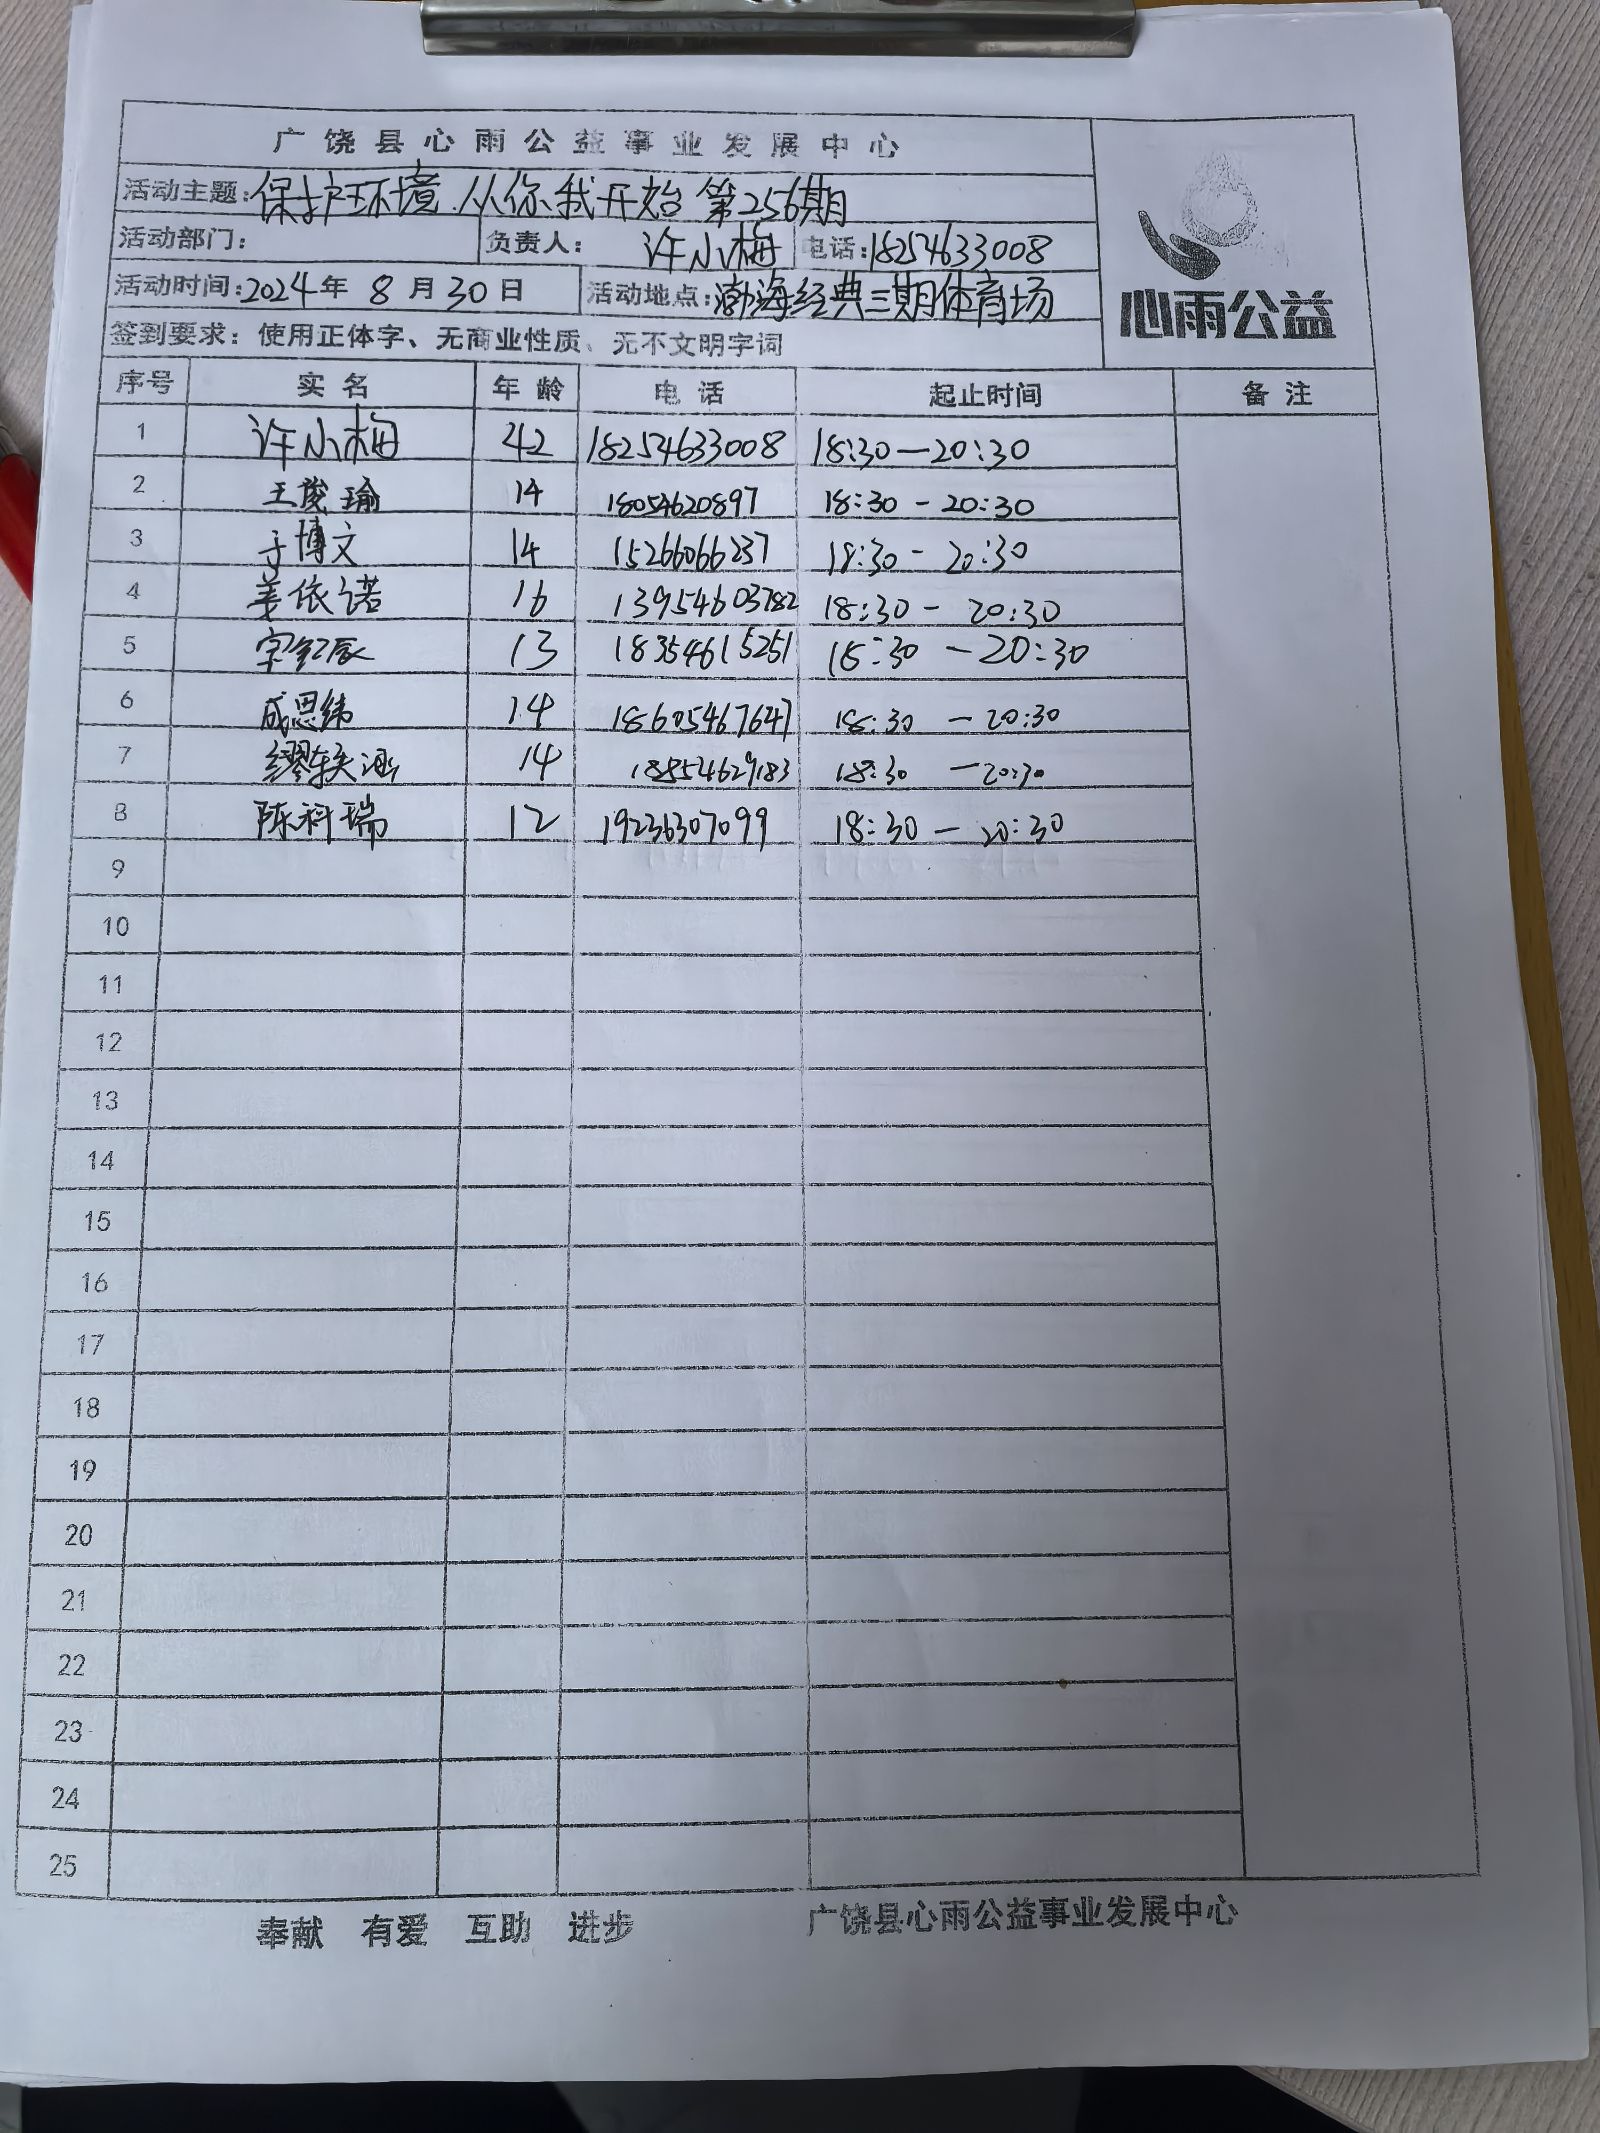 广饶县心雨公益事业发展中心
活动主题:保护环境.从你我开始 第256期
活动部门: 负责人: 许小梅 电话:18254633008
活动时间:2024年 8 月 30 日 活动地点:渤海经典三期体育场
心雨公益
签到要求: 使用正体字、无商业性质、无不文明字词
序号 实名 年龄 电话 起止时间 备注
1 许小梅 42 18254633008 18:30—20:30
2 王俊瑜 14 18054620897 18:30 - 20:30
3 于博文 14 15266066237 18:30 - 20:30
4 姜依诺 16 13954603782 18:30 - 20:30
5 13 18354615251 18:30 - 20:30
6 成思纬 14 18605467647 18:30 - 20:30
7 14 18854629183 18:30 - 20:30
8 陈科瑞 12 19236307099 18:30 - 20:30
9
10
11
12
13
14
15
16
17
18
19
20
21
22
23
24
25
奉献 有爱 互助 进步 广饶县心雨公益事业发展中心